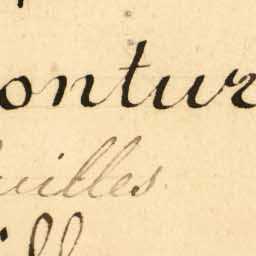 ontur
uilles
ill